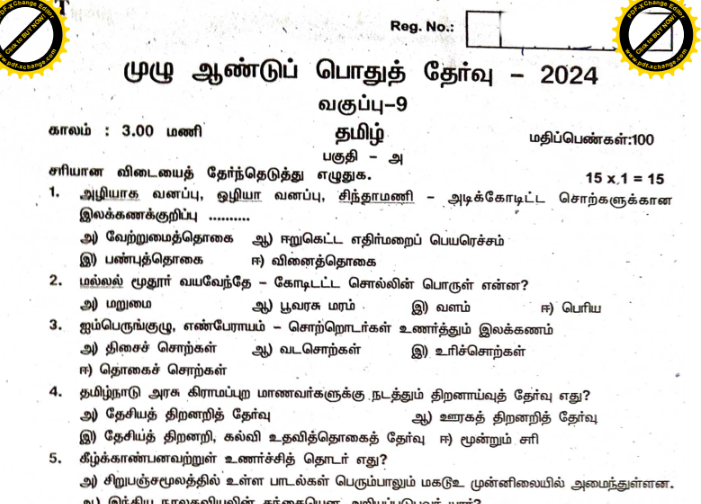 PDF-XChange Editor
Click to BUY NOW!
www.pdf-xchange.com
PDF-XChange Editor
Click to BUY NOW!
www.pdf-xchange.com
Reg. No.:
முழு ஆண்டுப் பொதுத் தேர்வு – 2024
வகுப்பு–9
காலம் : 3.00 மணி தமிழ் மதிப்பெண்கள்:100
பகுதி – அ
சரியான விடையைத் தேர்ந்தெடுத்து எழுதுக. 15 x 1 = 15
1. அழியாக வனப்பு, ஒழியா வனப்பு, சிந்தாமணி – அடிக்கோடிட்ட சொற்களுக்கான
இலக்கணக்குறிப்பு ..........
அ) வேற்றுமைத்தொகை ஆ) ஈறுகெட்ட எதிர்மறைப் பெயரெச்சம்
இ) பண்புத்தொகை ஈ) வினைத்தொகை
2. மல்லல் மூதூர் வயவேந்தே – கோடிடட்ட சொல்லின் பொருள் என்ன?
அ) மறுமை ஆ) பூவரசு மரம் இ) வளம் ஈ) பெரிய
3. ஐம்பெருங்குழு, எண்பேராயம் – சொற்றொடர்கள் உணர்த்தும் இலக்கணம்
அ) திசைச் சொற்கள் ஆ) வடசொற்கள் இ) உரிச்சொற்கள்
ஈ) தொகைச் சொற்கள்
4. தமிழ்நாடு அரசு கிராமப்புற மாணவர்களுக்கு நடத்தும் திறனாய்வுத் தேர்வு எது?
அ) தேசியத் திறனறித் தேர்வு ஆ) ஊரகத் திறனறித் தேர்வு
இ) தேசியத் திறனறி, கல்வி உதவித்தொகைத் தேர்வு ஈ) மூன்றும் சரி
5. கீழ்க்காண்பனவற்றுள் உணர்ச்சித் தொடர் எது?
அ) சிறுபஞ்சமூலத்தில் உள்ள பாடல்கள் பெரும்பாலும் மகடூஉ முன்னிலையில் அமைந்துள்ளன.